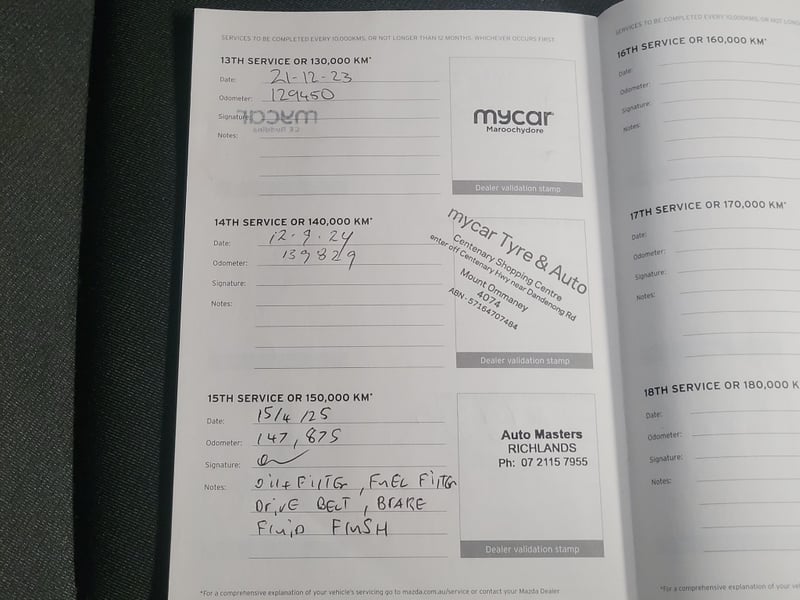 SERVICES TO BE COMPLETED EVERY 10,000KMS, OR NOT LONGER THAN 12 MONTHS, WHICHEVER OCCURS FIRST.
13TH SERVICE OR 130,000 KM*
Date: 21-12-23
Odometer: 129450
Signature:
Notes:
mycar
Maroochydore
Dealer validation stamp
14TH SERVICE OR 140,000 KM*
Date: 12.9.24
Odometer: 139829
Signature:
Notes:
mycar Tyre & Auto
Centenary Shopping Centre
enter off Centenary Hwy near Dandenong Rd
Mount Ommaney
4074
ABN-57164707484
Dealer validation stamp
15TH SERVICE OR 150,000 KM*
Date: 15/4/25
Odometer: 147,875
Signature:
Notes: Oil + FilTer, FuEL FilTer
DrivE BELT, BRAKE
Fluid FlusH
Auto Masters
RICHLANDS
Ph: 07 2115 7955
Dealer validation stamp
*For a comprehensive explanation of your vehicle's servicing go to mazda.com.au/service or contact your Mazda Dealer
SERVICES TO BE COMPLETED EVERY 10,000KMS, OR NOT LONG
16TH SERVICE OR 160,000 KM*
Date:
Odometer:
Signature:
Notes:
17TH SERVICE OR 170,000 KM*
Date:
Odometer:
Signature:
Notes:
18TH SERVICE OR 180,000 K
Date:
Odometer:
Signature:
Notes:
*For a comprehensive explanation of your vehicle's